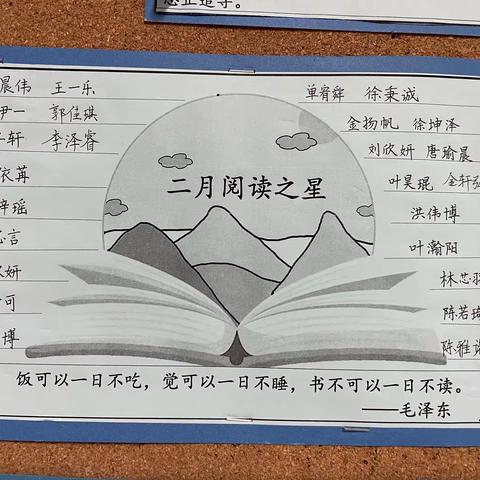 晨伟 王一乐
尹一 郭佳琪
轩 李泽睿
依苒
瑶
言
妍
可
博
二月阅读之星
单宥舜 徐秉诚
金扬帆 徐坤泽
刘欣妍 唐瑜晨
叶昊焜 金轩
洪伟博
叶瀚阳
林芯羽
陈若琦
陈雅
饭可以一日不吃，觉可以一日不睡，书不可以一日不读。
——毛泽东